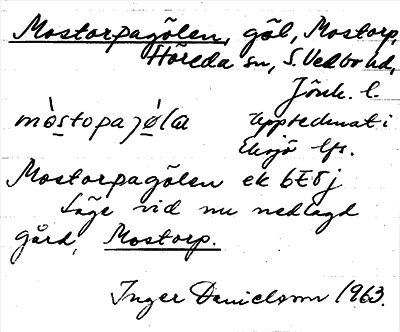 Mostorpagölen, göl, Mostorp,
Höreda sn, S. Vedbo hd,
Jönk. l.
mòstopajø̀la upptecknat i
Eksjö lfs.
Mostorpagölen ek 6E8j
Läge vid nu nedlagd
gård, Mostorp.
Inger Danielsson 1963.